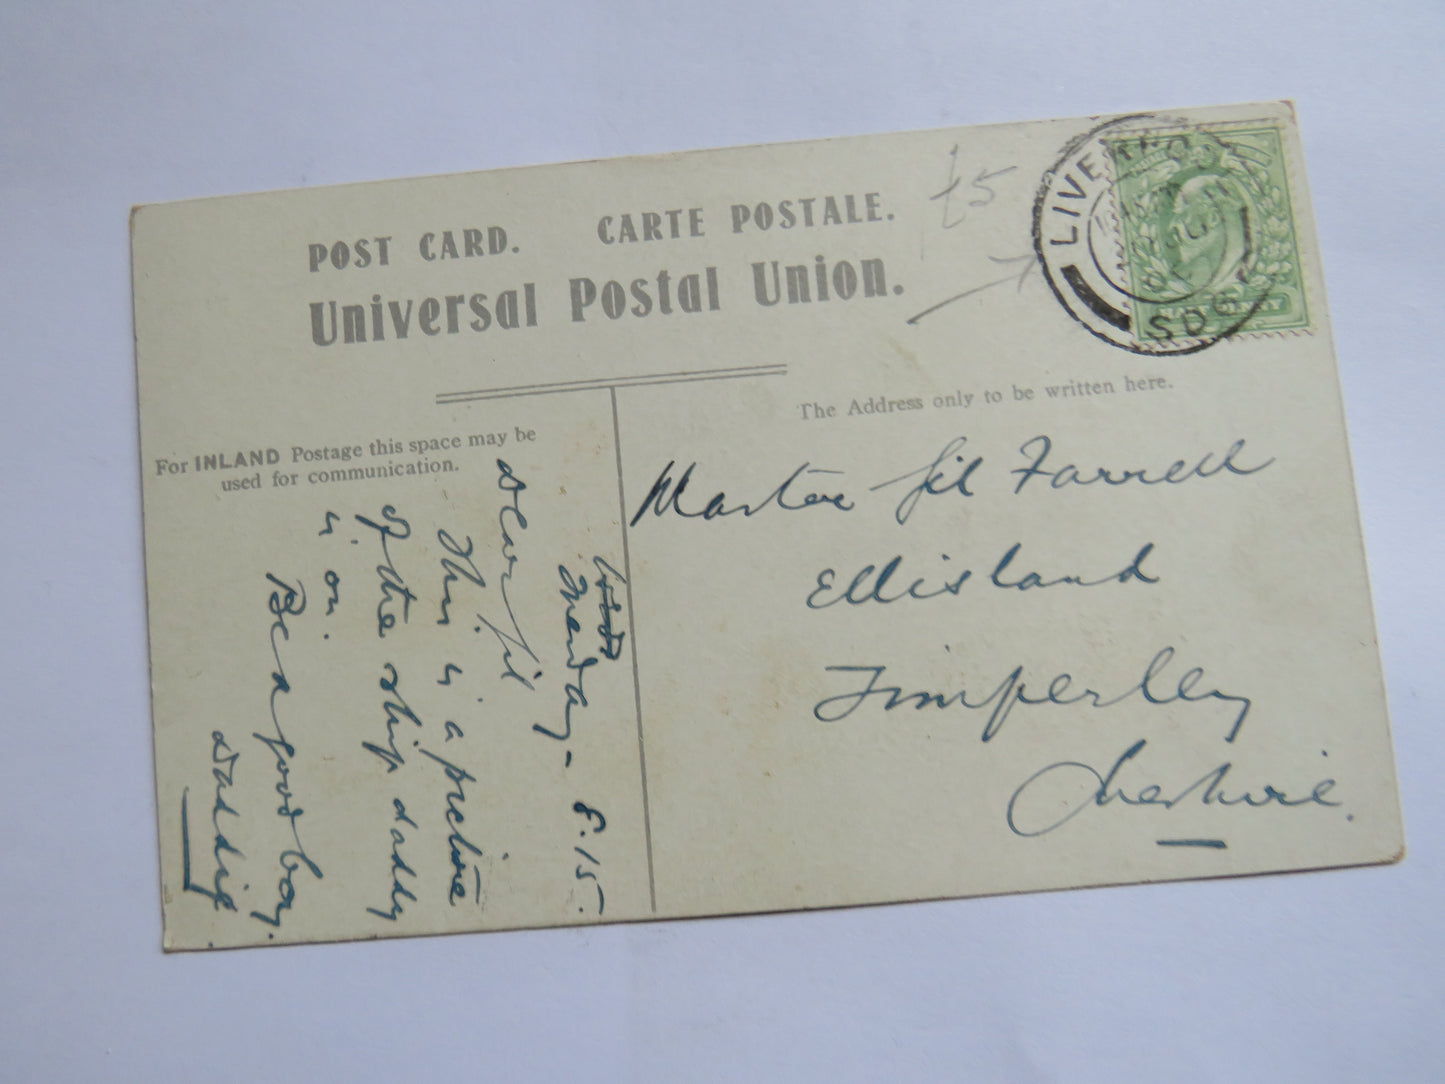 POST CARD. CARTE POSTALE.
Universal Postal Union.
£5
LIVERPOOL
SDG
For INLAND Postage this space may be
used for communication.
The Address only to be written here.
Monday - 8.15.
Dear Jil
This is a picture
of the ship daddy
is on.
Be a good boy.
Daddie.
Master Jil Farrell
Ellisland
Timperley
Cheshire.